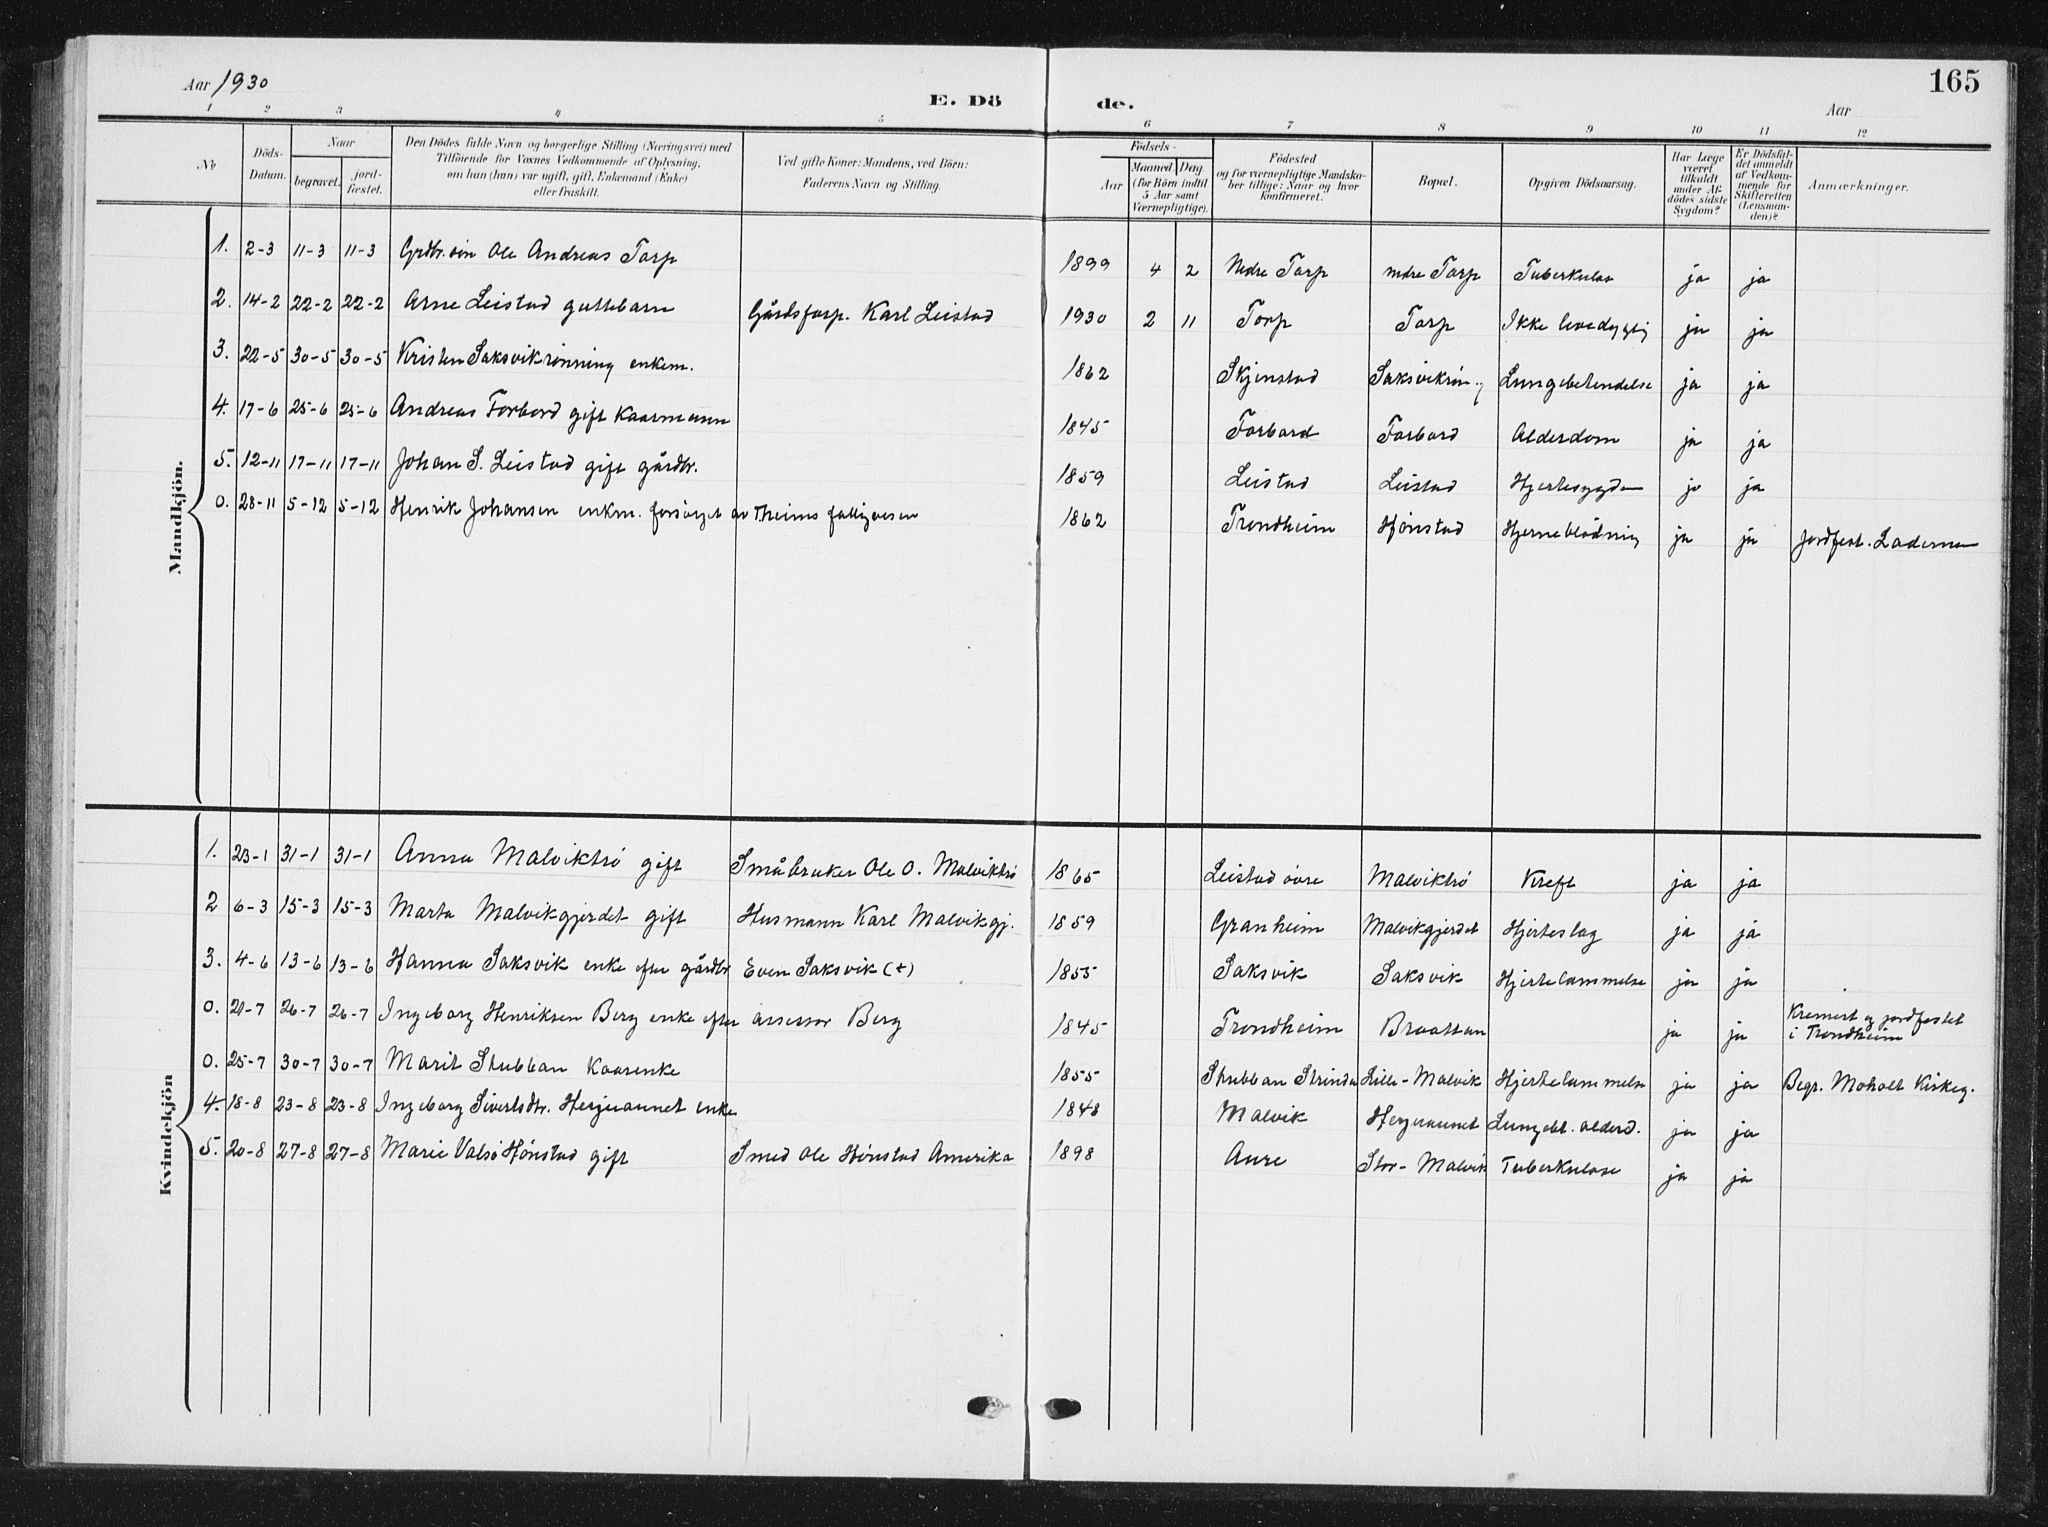 165
Aar 1930
E. Dö de.
Aar
1 2 3 4 5 6 7 8 9 10 11 12
No
Döds-Datum.
Naar
begravet.
jord-fæstet.
Den Dödes fulde Navn og borgerlige Stilling (Næringsvei) med
Tilföiende for Voxnes Vedkommende af Oplysning,
om han (hun) var ugift, gift, Enkemand (Enke)
eller fraskilt.
Ved gifte Koner: Mandens, ved Börn:
Faderens Navn og Stilling.
Födsels-
Aar
Maaned
Dag
(for Börn indtil
5 Aar samt
Værnepligtige).
Födested
og for værnepligtige Mandska-
ber tillige: Naar og hvor
konfirmeret.
Bopæl.
Opgiven Dödsaarsag.
Har Læge
været
tilkaldt
under Af-
dödes sidste
Sygdom?
Er Dödsfal-
det anmeldt
af Vedkom-
mende for
Skifteretten
(Lensman-
den)?
Anmærkninger.
Mandkjön.
1. 2-3 11-3 11-3 Grdbr. sön Ole Andreas Torp 1899 4 2 Nedre Torp nedre Torp Tuberkulose ja ja
2. 14-2 22-2 22-2 Arne Leistad guttebarn Gårdsforp. Karl Leistad 1930 2 11 Torp Torp Ikke levedygtig ja ja
3. 22-5 30-5 30-5 Kristen Saksvikrönning enkem. 1862 Skjenstad Saksvikrön. Lungebetendelse ja ja
4. 17-6 25-6 25-6 Andreas Forbord gift Kaarmann 1845 Forbord Forbord Alderdom ja ja
5. 12-11 17-11 17-11 Johan S. Leistad gift gårdbr. 1859 Leistad Leistad Hjertesygdom ja ja
0. 28-11 5-12 5-12 Henrik Johansen enkm. forsörget av Theims fattigvesen 1862 Trondheim Hönstad Hjerneblödning ja ja Jordfest. Lademoen
Kvindekjön
1. 23-1 31-1 31-1 Anna Malviktrö gift Småbruker Ole O. Malviktrö 1865 Leistad övre Malviktrö Kreft ja ja
2 6-3 15-3 15-3 Marta Malvikgjerdet gift Husmann Karl Malvikgj. 1859 Granheim Malvikgjerdet Hjerteslag ja ja
3. 4-6 13-6 13-6 Hanna Saksvik enke efter gårdbr Even Saksvik (+) 1855 Saksvik Saksvik Hjertelammelse ja ja
0. 21-7 26-7 26-7 Ingeborg Henriksen Berg enke efter assessor Berg 1845 Trondheim Braattan ja ja Kremert og jordfestet
i Trondheim
0. 25-7 30-7 30-7 Marit Stubban Kaarenke 1855 Stubban Strinda Lille-Malvik Hjertelammelse ja ja Begr. Moholt Kirkeg.
4. 18-8 23-8 23-8 Ingeborg Sivertsdtr. Herjuaunet enke 1848 Malvik Herjuaunet Lungebt. alderd. ja ja
5. 20-8 27-8 27-8 Marie Valsö Hönstad gift Smed Ole Hönstad Amerika 1898 Aure Stor-Malvik Tuberkulose ja ja